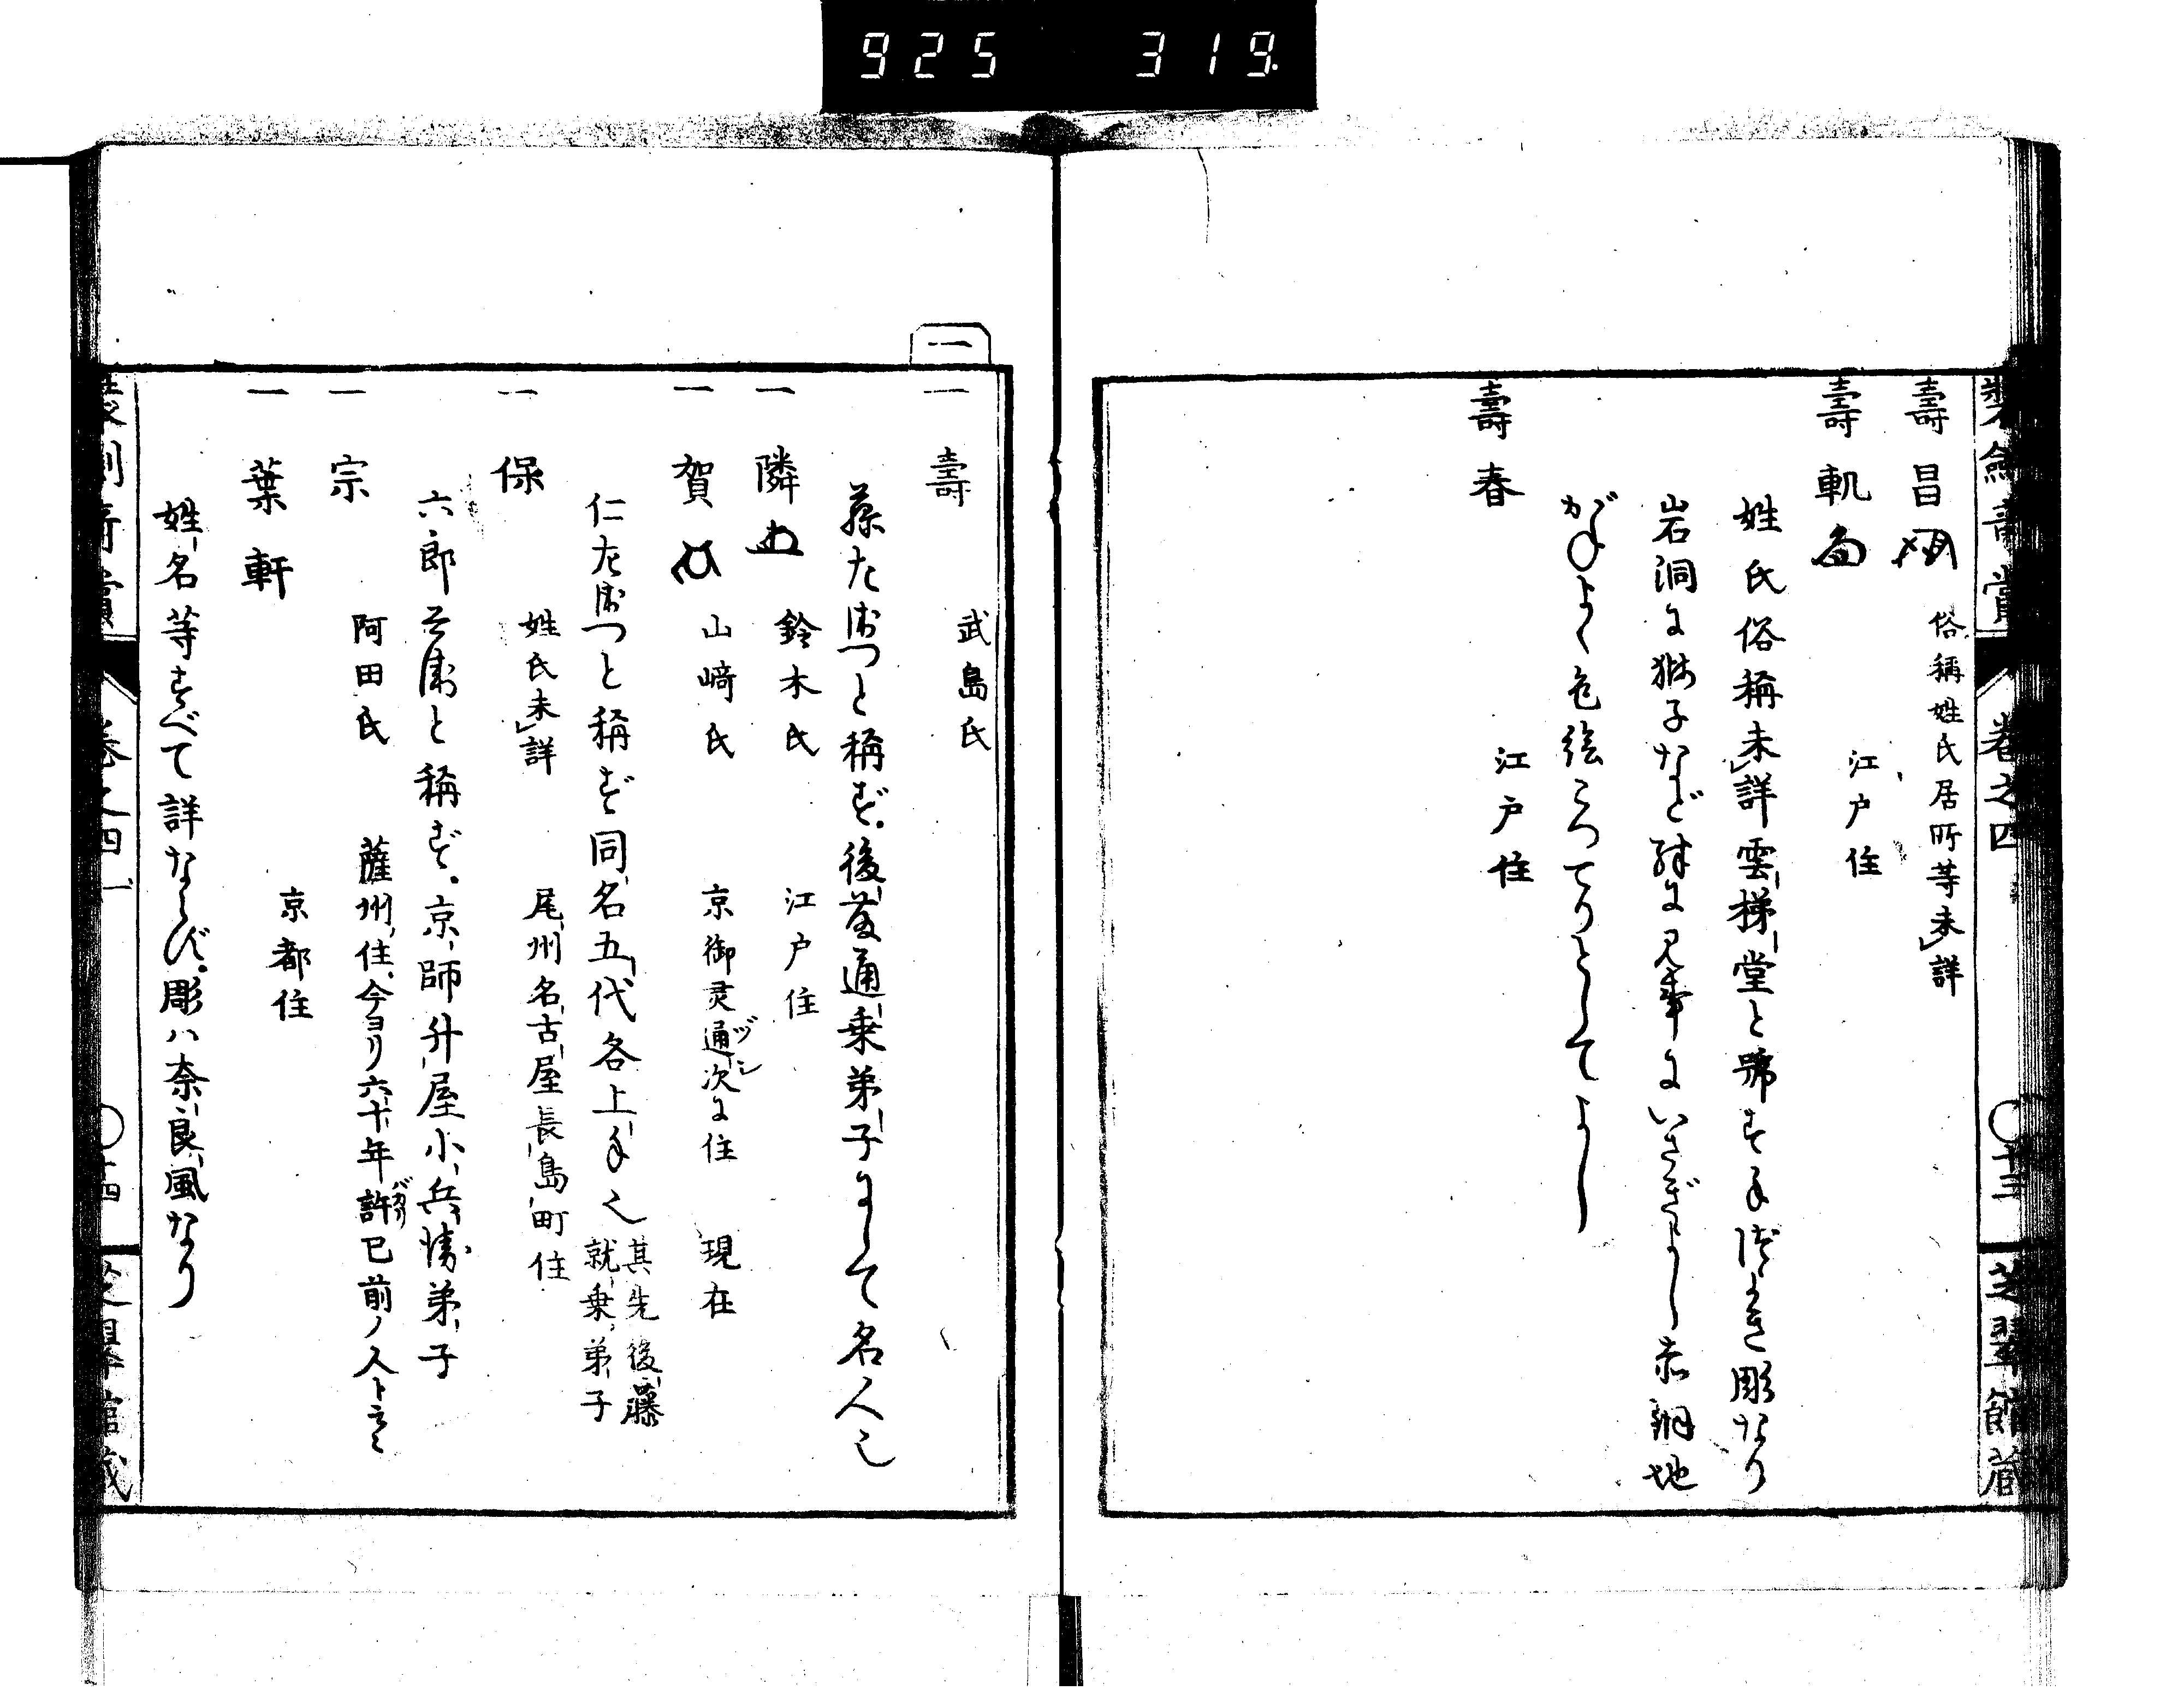 925 319.
製劔奇賞 卷之四 〇十三 芝翠館蔵
壽昌 俗稱姓氏居所等未詳
壽軏 江戸住
姓氏俗稱未詳雲梯堂と號す手づよき彫なり
岩洞に獅子など殊に見事にいさぎよし赤銅地
がねよく色絵こつてりとしてよし
壽春 江戸住
一
一壽 武島氏
孫左衛つと稱ず。後藤通乗弟子にして名人也
一隣 鈴木氏 江戸住
一賀 山﨑氏 京御灵通次ヅシに住 現在
仁左衛つと稱ず同名五代各上手也 其先後藤
就乗弟子
一保 姓氏未詳 尾州名古屋長島町住
六郎兵衛と稱ず。京師升屋小兵衛弟子
一宗 阿田氏 薩州住今ヨリ六十年許バカリ已前ノ人ト云々
一葉軒 京都住
姓名等すべて詳ならず。彫ハ奈良風なり
卷之四